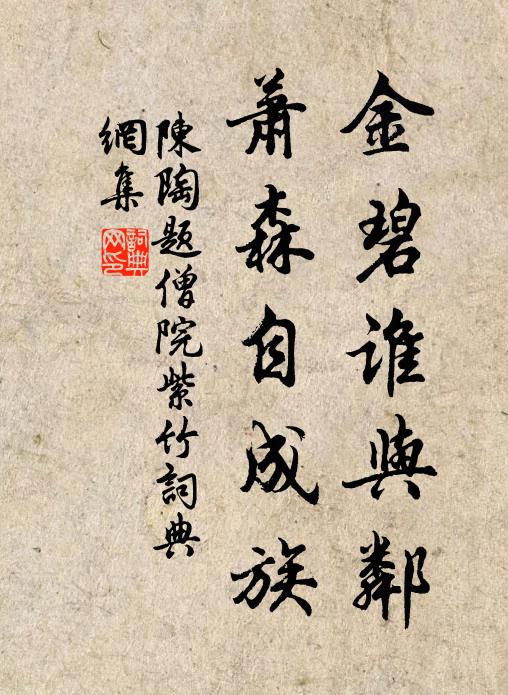 金碧誰與鄰
蕭森自成族
陳陶題僧院紫竹詞典
網集
詞典網印